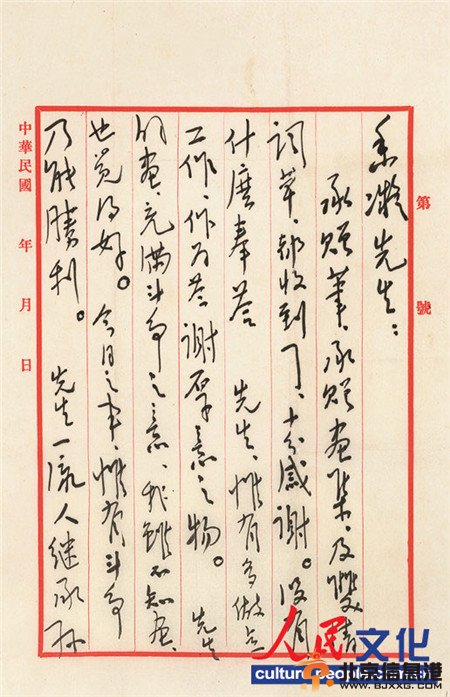 第 號
香凝先生：
承贈筆、承贈畫集、及雙清
詞草、都收到了、十分感謝。没有
什麼奉答 先生、惟有多做点
工作、作为答謝厚意之物。 先生
的畫、充滿斗争之意、我雖不知畫、
也覺得好。今日之事、惟有斗争
乃能勝利。 先生一流人继承孙
中華民國 年 月 日
人民 文化
culture.people.com.cn
北京信息港
WWW.BJXXG.COM